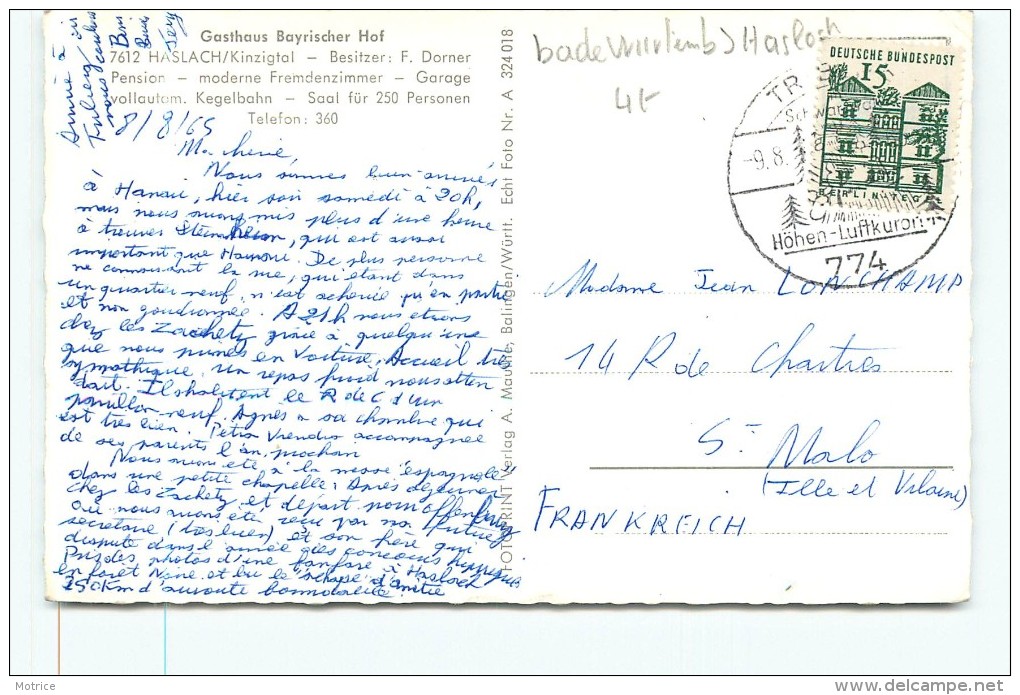 Gasthaus Bayrischer Hof
7612 HASLACH/Kinzigtal – Besitzer: F. Dorner
Pension – moderne Fremdenzimmer – Garage
vollautom. Kegelbahn – Saal für 250 Personen
Telefon: 360
8/8/65
Ma chérie,
Nous sommes bien arrivés
à Hanau, hier soir samedi à 20h,
mais nous avons mis plus d'une heure
à trouver Steinheim, qui est aussi
important que Hanau. De plus personne
ne connaissait la rue, qui étant dans
un quartier neuf, n'est achevée qu'en partie
et non goudronnée. A 21h nous étions
chez les Zachetz grâce à quelqu'un
que nous prîmes en voiture. Accueil très
sympathique. Un repas froid nous atten
dait. Ils habitent le R de C d'un
pavillon neuf. Agnès a sa chambre qui
est très bien. Petra viendra accompagnée
de ses parents l'an prochain
Nous avons été à la messe "espagnole"
dans une petite chapelle. Après déjeuner
chez les Zachetz et départ pour Offenburg
où nous avons été reçu par ma future
secrétaire (très bien) et son père qui
dispute dans l'année des concours hippiques
Pris des photos d'une fanfare à Haslach
en forêt Noire et bu le "schnaps" d'amitié
250km d'autoroute
FOTOPRINT Verlag A. Mauthe, Balingen/Württ. Echt Foto Nr. A 324 018
Haslach
4F
DEUTSCHE BUNDESPOST
15
BERLIN
-9.8.
Höhen-Luftkurort
774
Madame Jean LONCHAMP
14 R de Chartres
St Malo
(Ille et Vilaine)
FRANKREICH
Motrice
www.delcampe.net